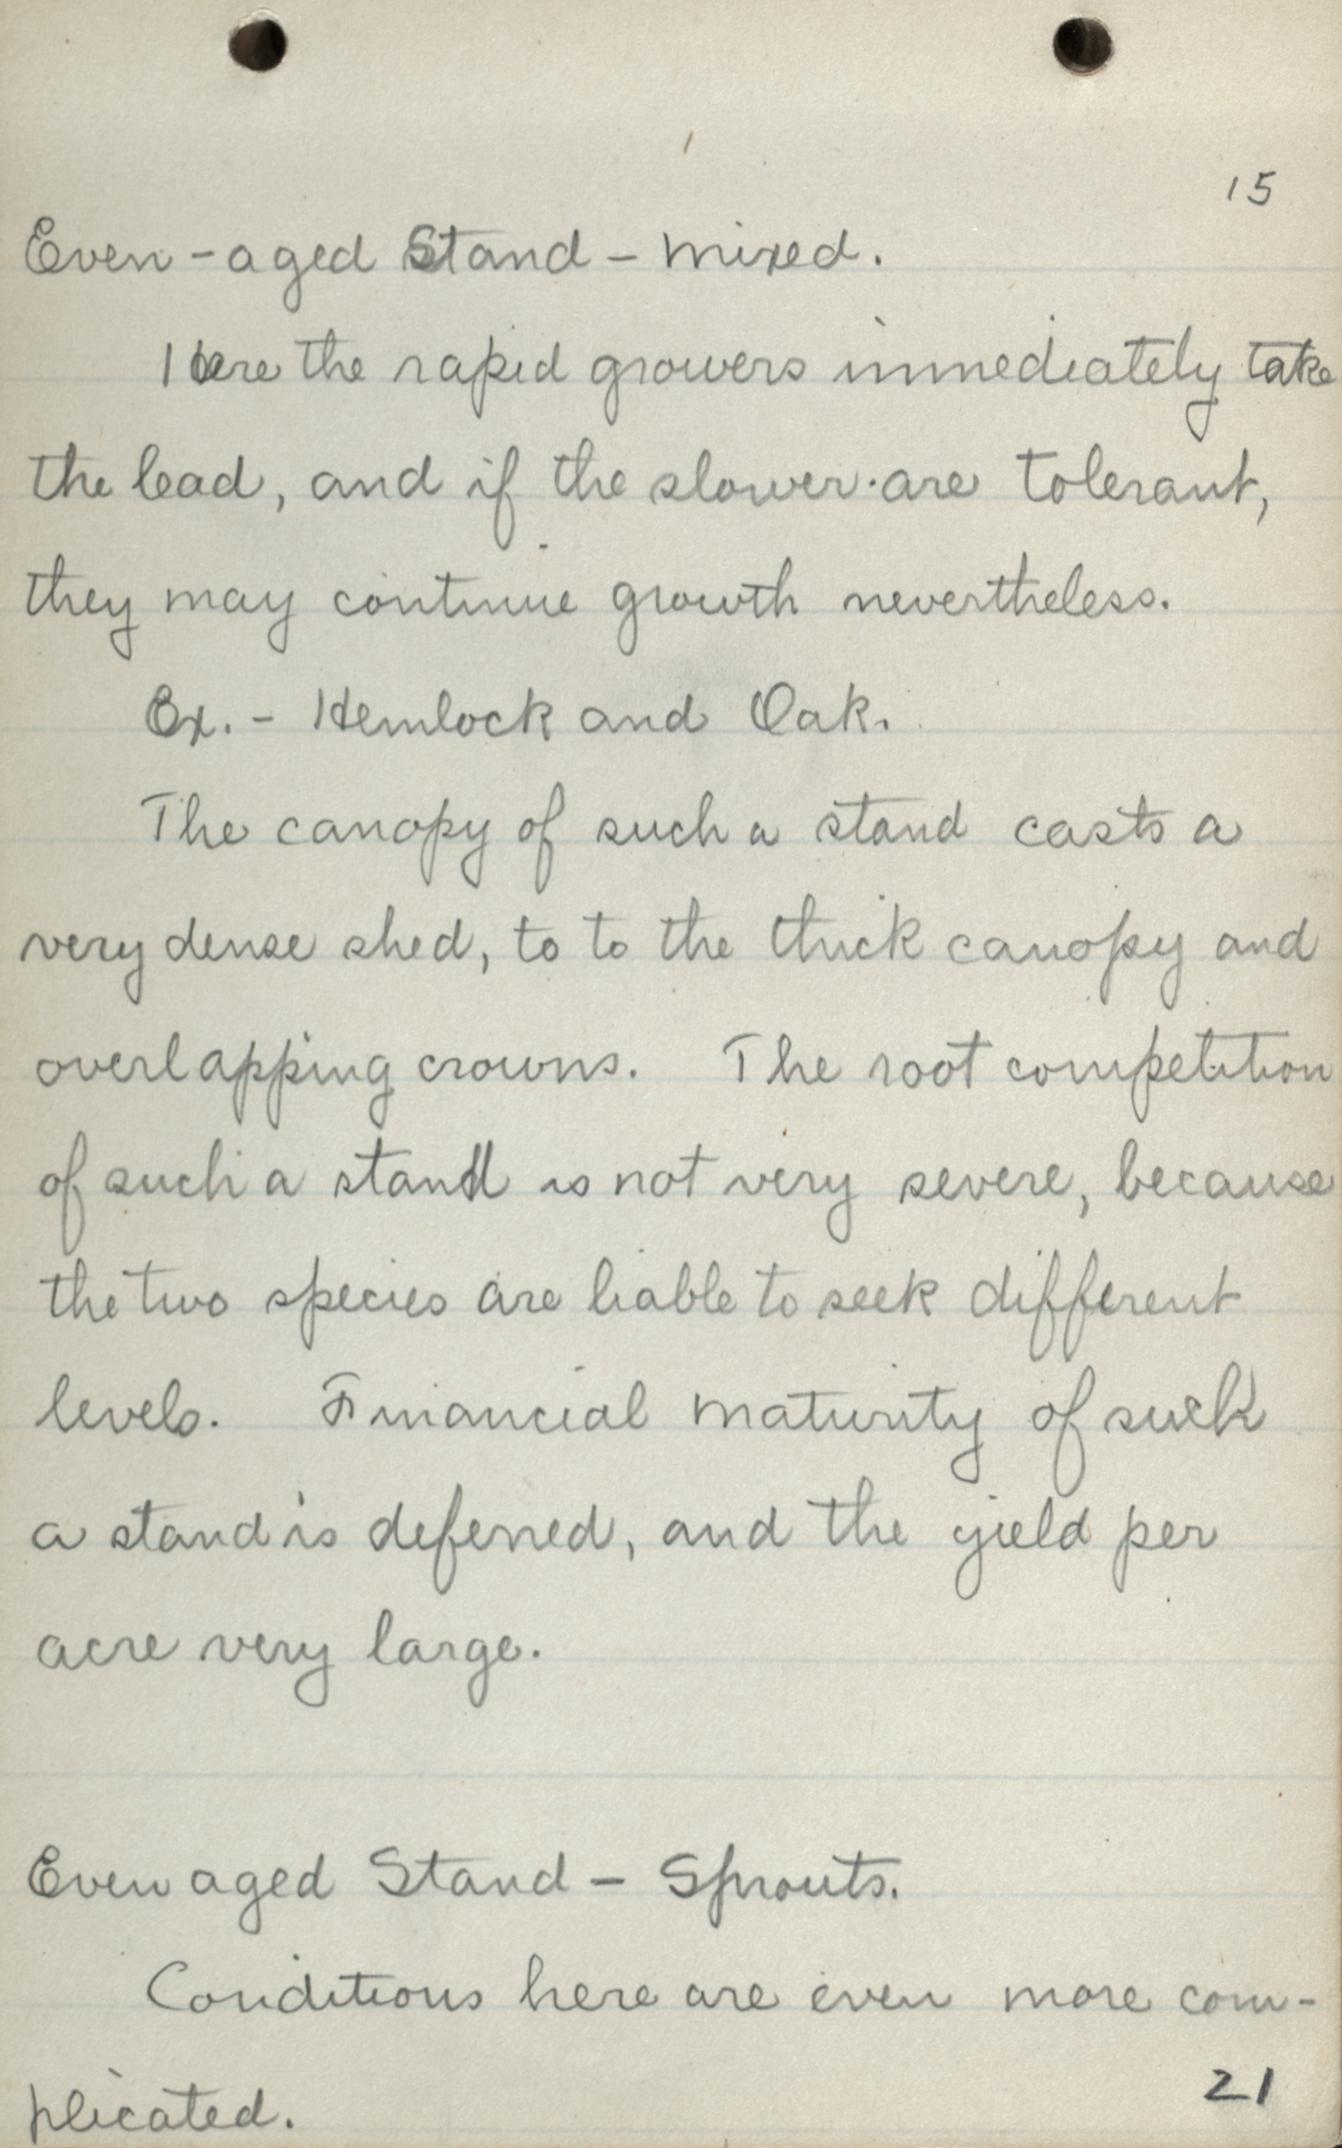 15
Even-aged Stand - Mixed.
Here the rapid growers immediately take
the lead, and if the slower are tolerant,
they may continue growth nevertheless.
Ex. - Hemlock and Oak.
The canopy of such a stand casts a
very dense shed, to to the thick canopy and
overlapping crowns. The root competition
of such a stand is not very severe, because
the two species are liable to seek different
levels. Financial maturity of such
a stand is deferred, and the yield per
acre very large.
Even aged Stand - Sprouts.
Conditions here are even more com-
plicated.
21